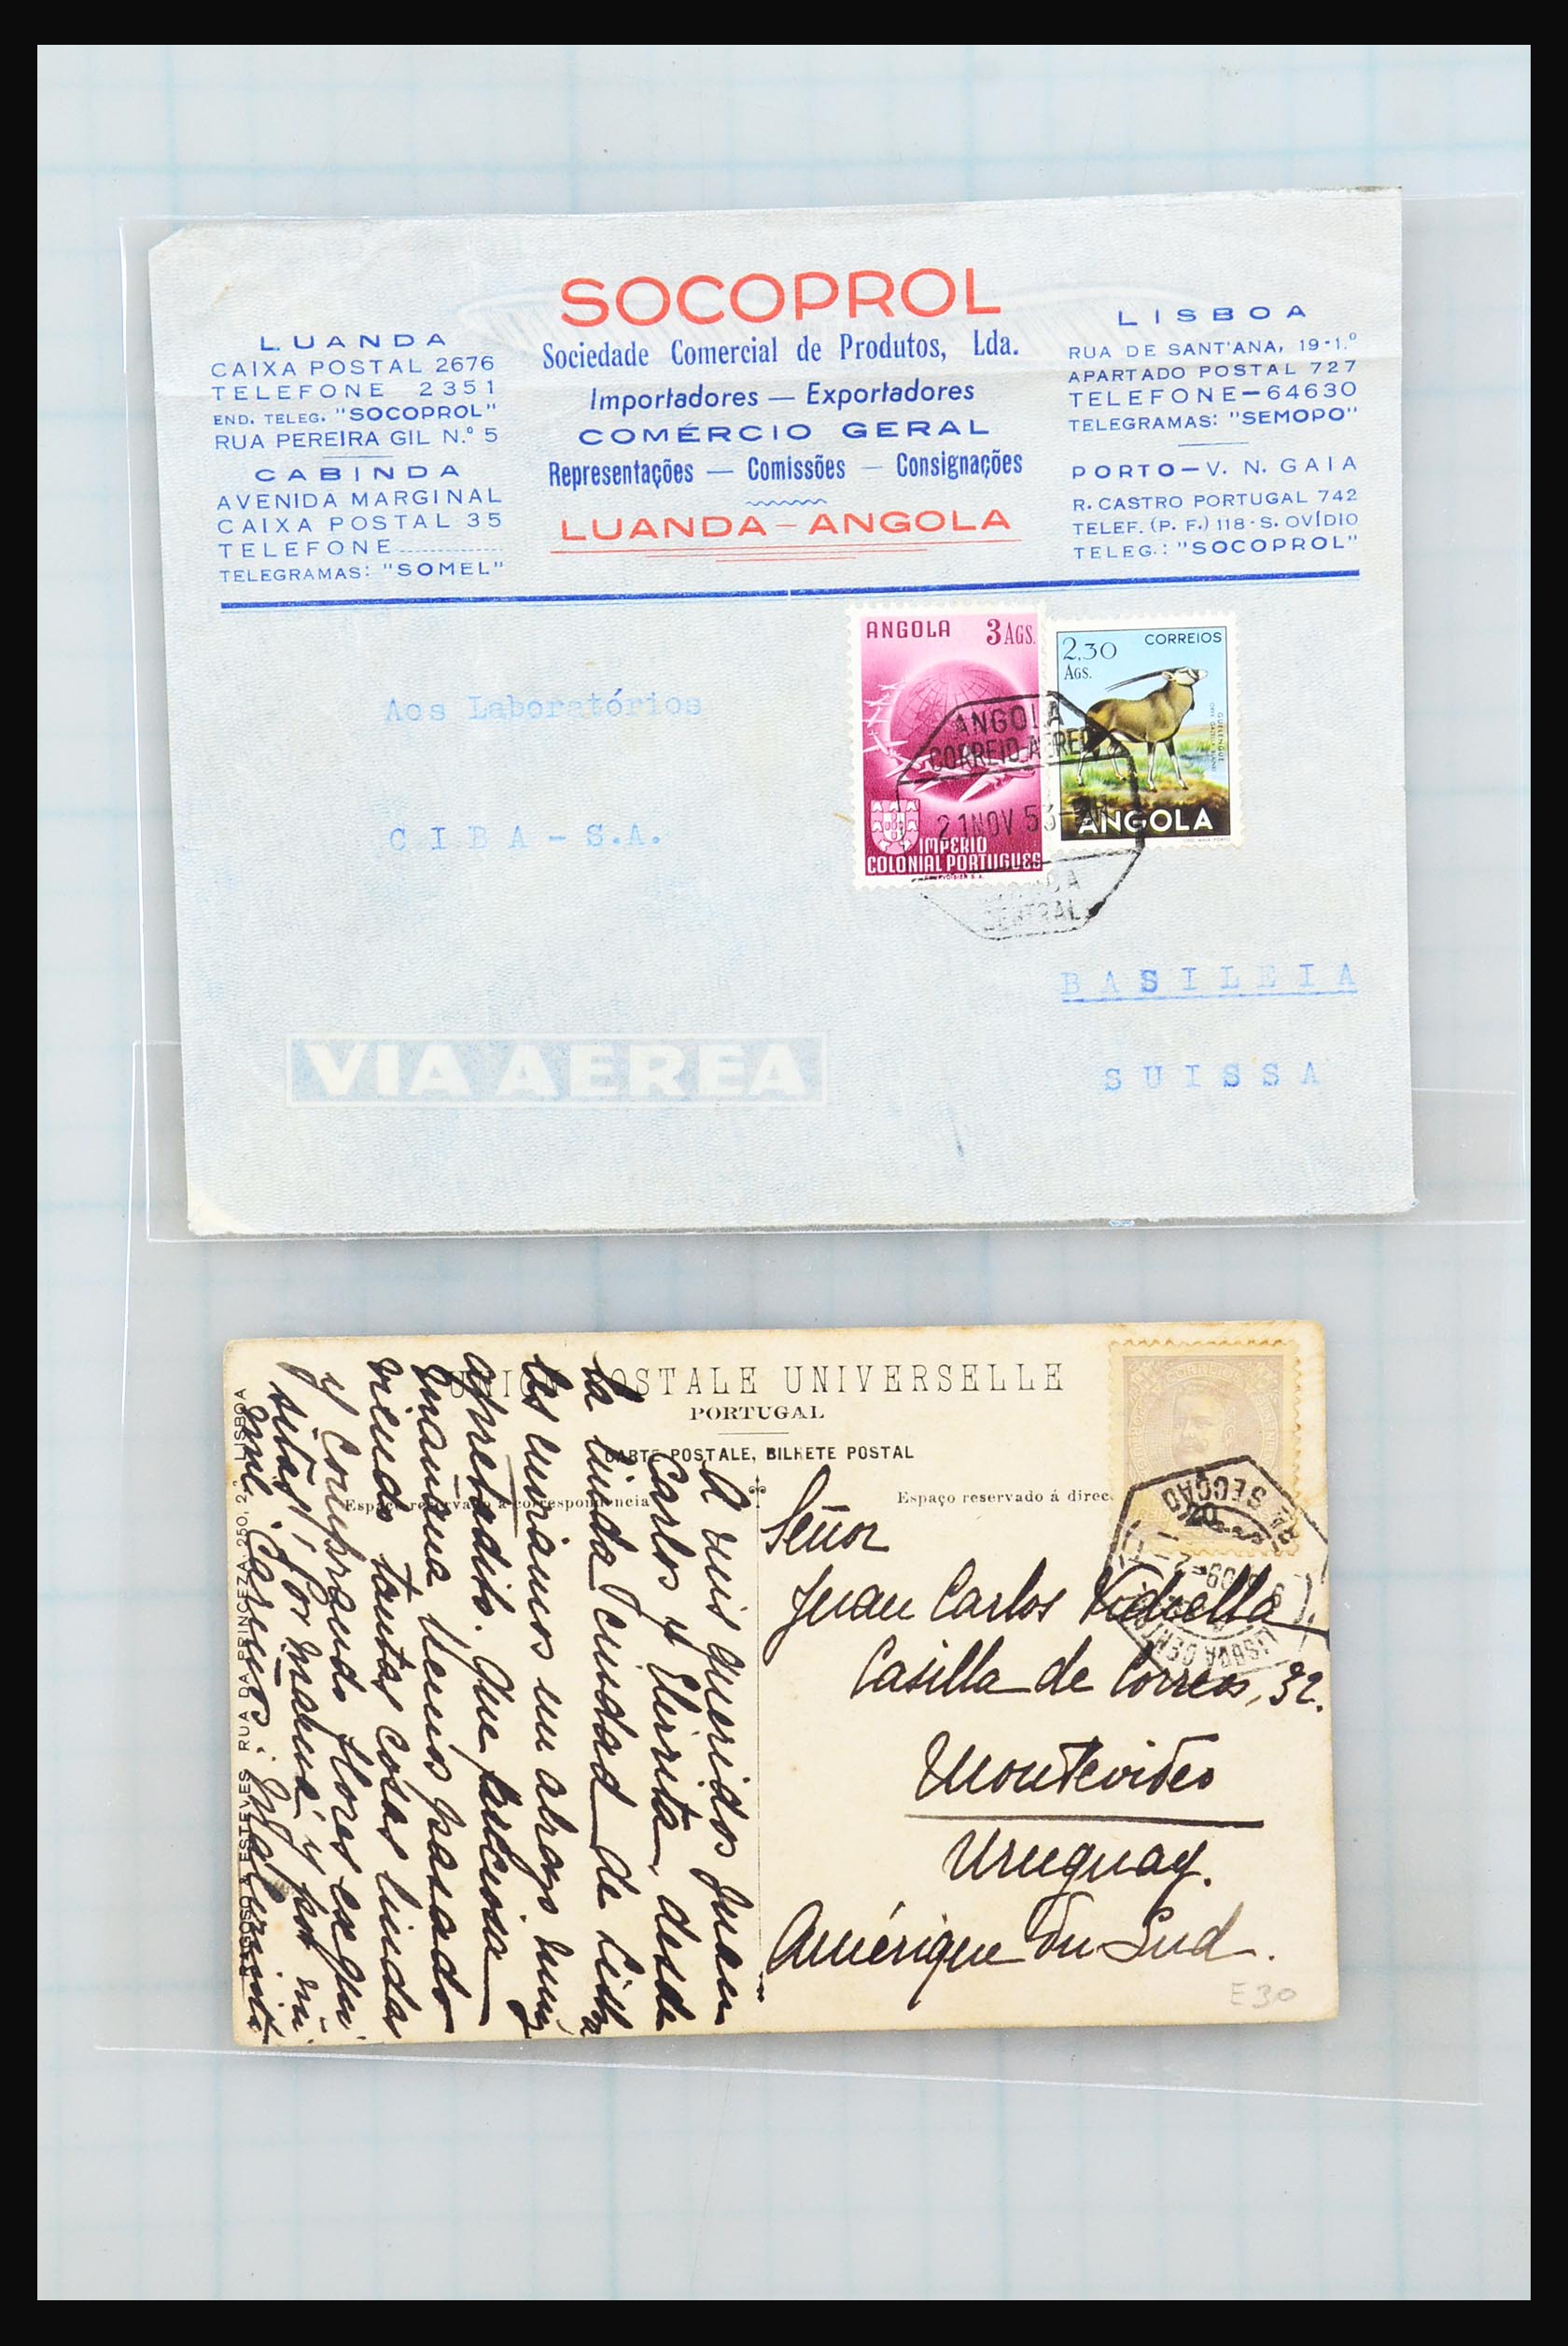 SOCOPROL
Sociedade Comercial de Produtos, Lda.
Importadores — Exportadores
COMÉRCIO GERAL
Representações — Comissões — Consignações
LUANDA – ANGOLA
LUANDA
CAIXA POSTAL 2676
TELEFONE 2351
END. TELEG. "SOCOPROL"
RUA PEREIRA GIL N.º 5
CABINDA
AVENIDA MARGINAL
CAIXA POSTAL 35
TELEFONE
TELEGRAMAS: "SOMEL"
LISBOA
RUA DE SANT'ANA, 19-1.º
APARTADO POSTAL 727
TELEFONE—64630
TELEGRAMAS: "SEMOPO"
PORTO—V. N. GAIA
R. CASTRO PORTUGAL 742
TELEF. (P. F.) 118-S. OVÍDIO
TELEG.: "SOCOPROL"
ANGOLA 3 AGS.
IMPÉRIO
COLONIAL PORTUGUES
2.30 CORREIOS
AGS.
ANGOLA
ANGOLA
CORREIO AEREO
21 NOV 53
CENTRAL
Aos Laboratórios
CIBA - S.A.
BASILEIA
SUISSA
VIA AEREA
UNION POSTALE UNIVERSELLE
PORTUGAL
CARTE POSTALE, BILHETE POSTAL
Espaço reservado á correspondencia
Espaço reservado á direc
A mis queridos Juan
Carlos y Elvirita, desde
la linda ciudad de Lisboa
les enviamos un abrazo muy
apretadito. Que preciosa
mañana hemos pasado
viendo tantas cosas lindas
y comprando flores exqui
sitas, por mamá y por mi
Señor
Juan Carlos Vidiella
Casilla de Correos, 32.
Montevideo
Uruguay.
Amérique du Sud.
E30
LISBOA CENTRAL
SECÇÃO
RUA DA PRINCEZA, 250, 2.º LISBOA